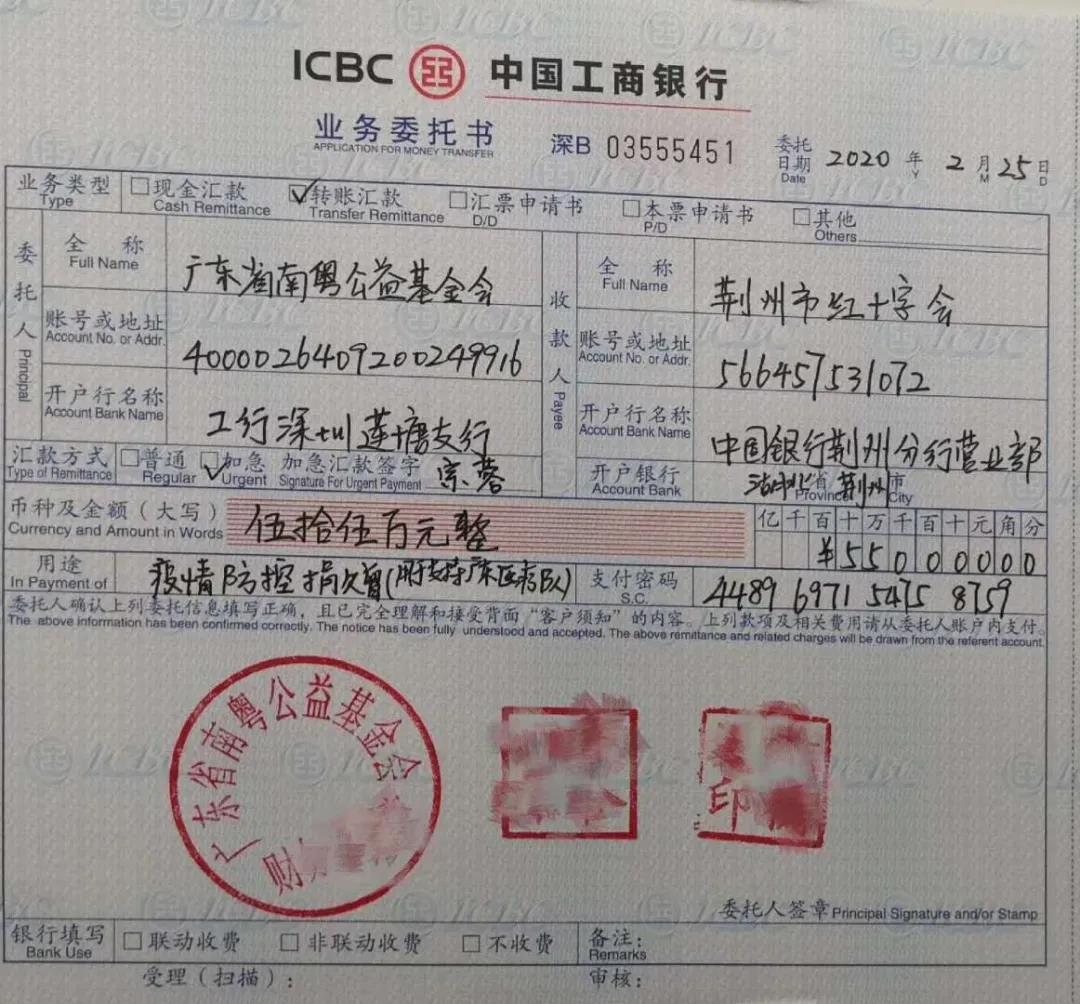 ICBC 中国工商银行
业务委托书
APPLICATION FOR MONEY TRANSFER
深B 03555451
委托日期 Date 2020 年 Y 2 月 M 25 日 D
业务类型 Type □现金汇款 Cash Remittance ☑转账汇款 Transfer Remittance □汇票申请书 D/D □本票申请书 P/D □其他 Others
委托人 Principal
全称 Full Name 广东省南粤公益基金会
账号或地址 Account No. or Addr. 4000026409200249916
开户行名称 Account Bank Name 工行深圳莲塘支行
收款人 Payee
全称 Full Name 荆州市红十字会
账号或地址 Account No. or Addr. 566457531072
开户行名称 Account Bank Name 中国银行荆州分行营业部
汇款方式 Type of Remittance □普通 Regular ☑加急 Urgent 加急汇款签字 Signature For Urgent Payment 宗蓉
开户银行 Account Bank 湖北省 Province 荆州市 City
币种及金额（大写） Currency and Amount in Words 伍拾伍万元整
亿千百十万千百十元角分
¥55000000
用途 In Payment of 疫情防控捐赠(用于支持广东医疗队)
支付密码 S.C. 4489 6971 5475 8759
委托人确认上列委托信息填写正确，且已完全理解和接受背面“客户须知”的内容。上列款项及相关费用请从委托人账户内支付。
The above information has been confirmed correctly. The notice has been fully understood and accepted. The above remittance and related charges will be drawn from the referent account.
广东省南粤公益基金会
财
印
委托人签章 Principal Signature and/or Stamp
银行填写 Bank Use □联动收费 □非联动收费 □不收费 备注： Remarks
受理（扫描）： 审核：